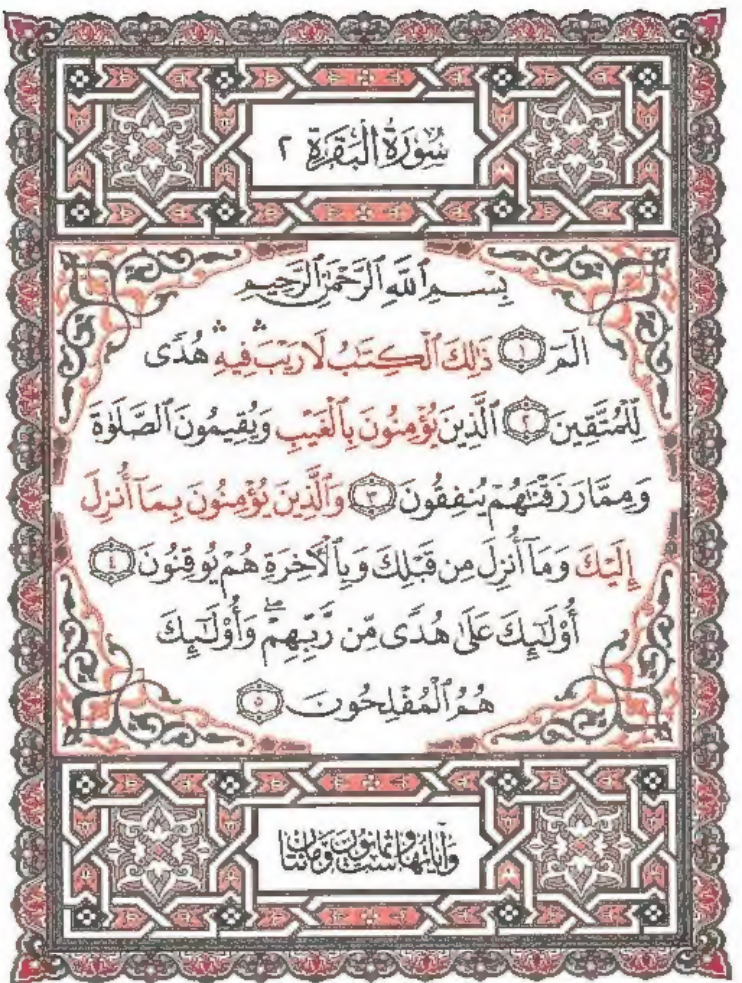 سُورَةُ الْبَقَرَةِ ٢
بِسْمِ ٱللَّهِ ٱلرَّحْمَٰنِ ٱلرَّحِيمِ
الٓمٓ ١ ذَٰلِكَ ٱلْكِتَٰبُ لَا رَيْبَ ۛ فِيهِ ۛ هُدًى
لِّلْمُتَّقِينَ ٢ ٱلَّذِينَ يُؤْمِنُونَ بِٱلْغَيْبِ وَيُقِيمُونَ ٱلصَّلَوٰةَ
وَمِمَّا رَزَقْنَٰهُمْ يُنفِقُونَ ٣ وَٱلَّذِينَ يُؤْمِنُونَ بِمَآ أُنزِلَ
إِلَيْكَ وَمَآ أُنزِلَ مِن قَبْلِكَ وَبِٱلْءَاخِرَةِ هُمْ يُوقِنُونَ ٤
أُو۟لَٰٓئِكَ عَلَىٰ هُدًى مِّن رَّبِّهِمْ ۖ وَأُو۟لَٰٓئِكَ
هُمُ ٱلْمُفْلِحُونَ ٥
وَآيَاتُهَا سِتٌّ وَثَمَانُونَ وَمِئَتَانِ